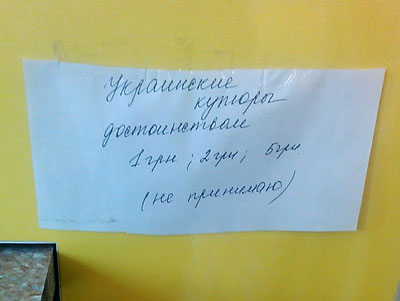 Украинские
купюры
достоинством
1грн ; 2грн ; 5грн
(не принимаю)